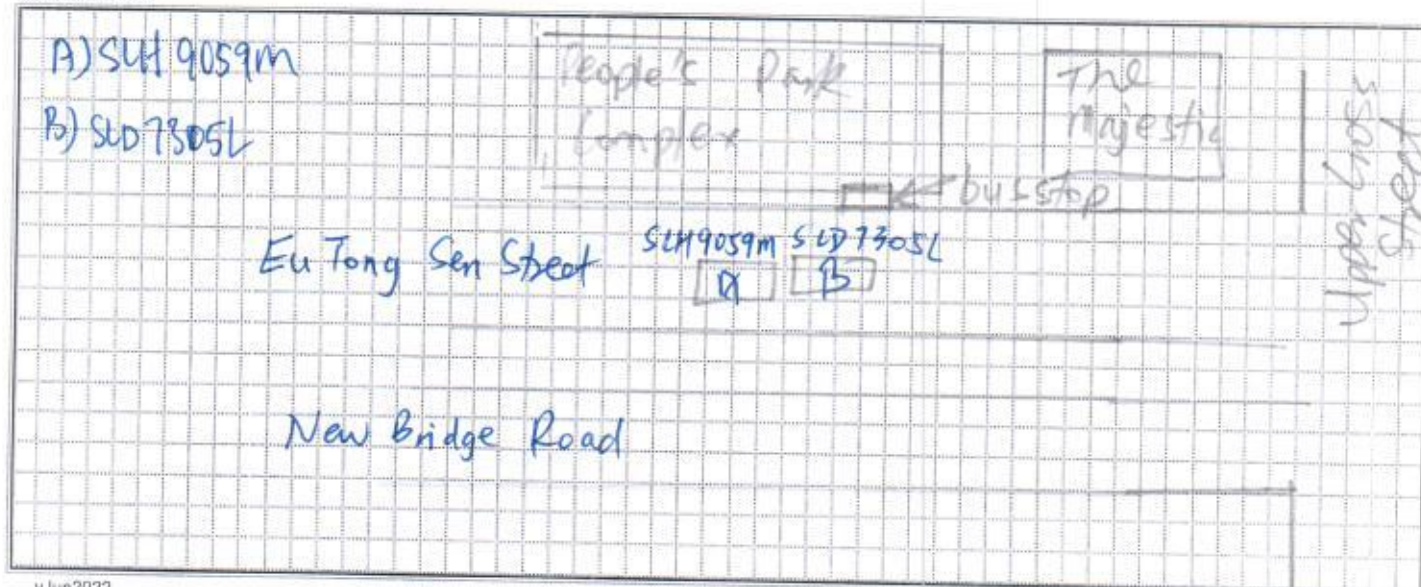 A) SLH 9059M
B) SLD 7305L
People's Park
Complex
The
Majestic
bus stop
Upper Cross
Street
Eu Tong Sen Street
SLH9059M SLD7305L
A B
New Bridge Road